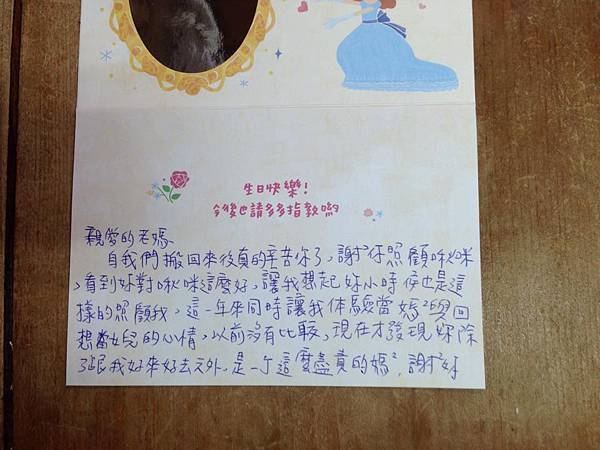 生日快樂!
今後也請多多指教喲
親愛的老媽
自我們搬回來後真的辛苦你了,謝²你照顧咪咪
,看到妳對啾咪這麼好,讓我想起妳小時候也是這
樣的照顧我,這一年來同時讓我体驗當媽²與回
想當女兒的心情,以前沒有比較,現在才發現妳除
了跟我好來好去之外,是一个這麼盡責的媽²,謝²妳